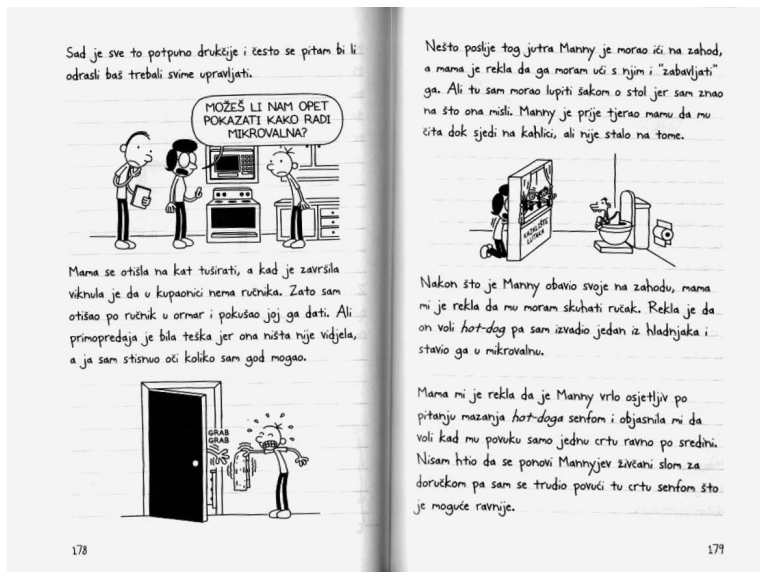 Sad je sve to potpuno drukčije i često se pitam bi li
odrasli baš trebali svime upravljati.
MOŽEŠ LI NAM OPET
POKAZATI KAKO RADI
MIKROVALNA?
Mama se otišla na kat tuširati, a kad je završila
viknula je da u kupaonici nema ručnika. Zato sam
otišao po ručnik u ormar i pokušao joj ga dati. Ali
primopredaja je bila teška jer ona ništa nije vidjela,
a ja sam stisnuo oči koliko sam god mogao.
GRAB
GRAB
178
Nešto poslije tog jutra Manny je morao ići na zahod,
a mama je rekla da ga moram ući s njim i "zabavljati"
ga. Ali tu sam morao lupiti šakom o stol jer sam znao
na što ona misli. Manny je prije tjerao mamu da mu
čita dok sjedi na kahlici, ali nije stalo na tome.
KAZALIŠTE
LUTAKA
Nakon što je Manny obavio svoje na zahodu, mama
mi je rekla da mu moram skuhati ručak. Rekla je da
on voli hot-dog pa sam izvadio jedan iz hladnjaka i
stavio ga u mikrovalnu.
Mama mi je rekla da je Manny vrlo osjetljiv po
pitanju mazanja hot-doga senfom i objasnila mi da
voli kad mu povuku samo jednu crtu ravno po sredini.
Nisam htio da se ponovi Mannyjev živčani slom za
doručkom pa sam se trudio povući tu crtu senfom što
je moguće ravnije.
179